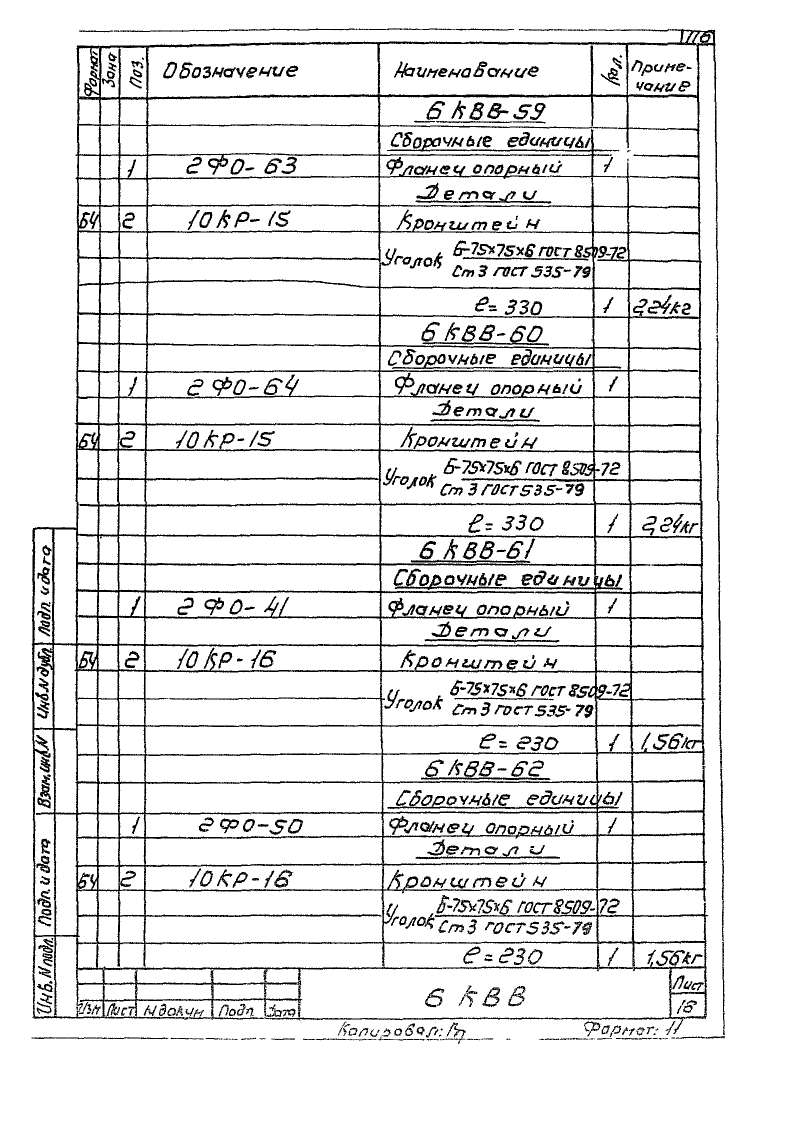 116
Формат Зона Поз. Обозначение Наименование Кол. Примечание
6 КВВ-59
Сборочные единицы
1 2ФО-63 Фланец опорный 1
Детали
БЧ 2 10КР-15 Кронштейн
Уголок Б-75х75х6 ГОСТ 8509-72
Ст 3 ГОСТ 535-79
ℓ=330 1 2,24кг
6 КВВ-60
Сборочные единицы
1 2ФО-64 Фланец опорный 1
Детали
БЧ 2 10КР-15 Кронштейн
Уголок Б-75х75х6 ГОСТ 8509-72
Ст 3 ГОСТ 535-79
ℓ=330 1 2,24кг
6 КВВ-61
Сборочные единицы
1 2ФО-41 Фланец опорный 1
Детали
БЧ 2 10КР-16 Кронштейн
Уголок Б-75х75х6 ГОСТ 8509-72
Ст 3 ГОСТ 535-79
ℓ=230 1 1,56кг
6 КВВ-62
Сборочные единицы
1 2ФО-50 Фланец опорный 1
Детали
БЧ 2 10КР-16 Кронштейн
Уголок Б-75х75х6 ГОСТ 8509-72
Ст 3 ГОСТ 535-79
ℓ=230 1 1,56кг
Инв.N подл. Подп. и дата Взам.инв.N Инв.N дубл. Подп. и дата
Изм Лист N докум Подп. Дата
6 КВВ
Лист
16
Копировал: Формат: 11